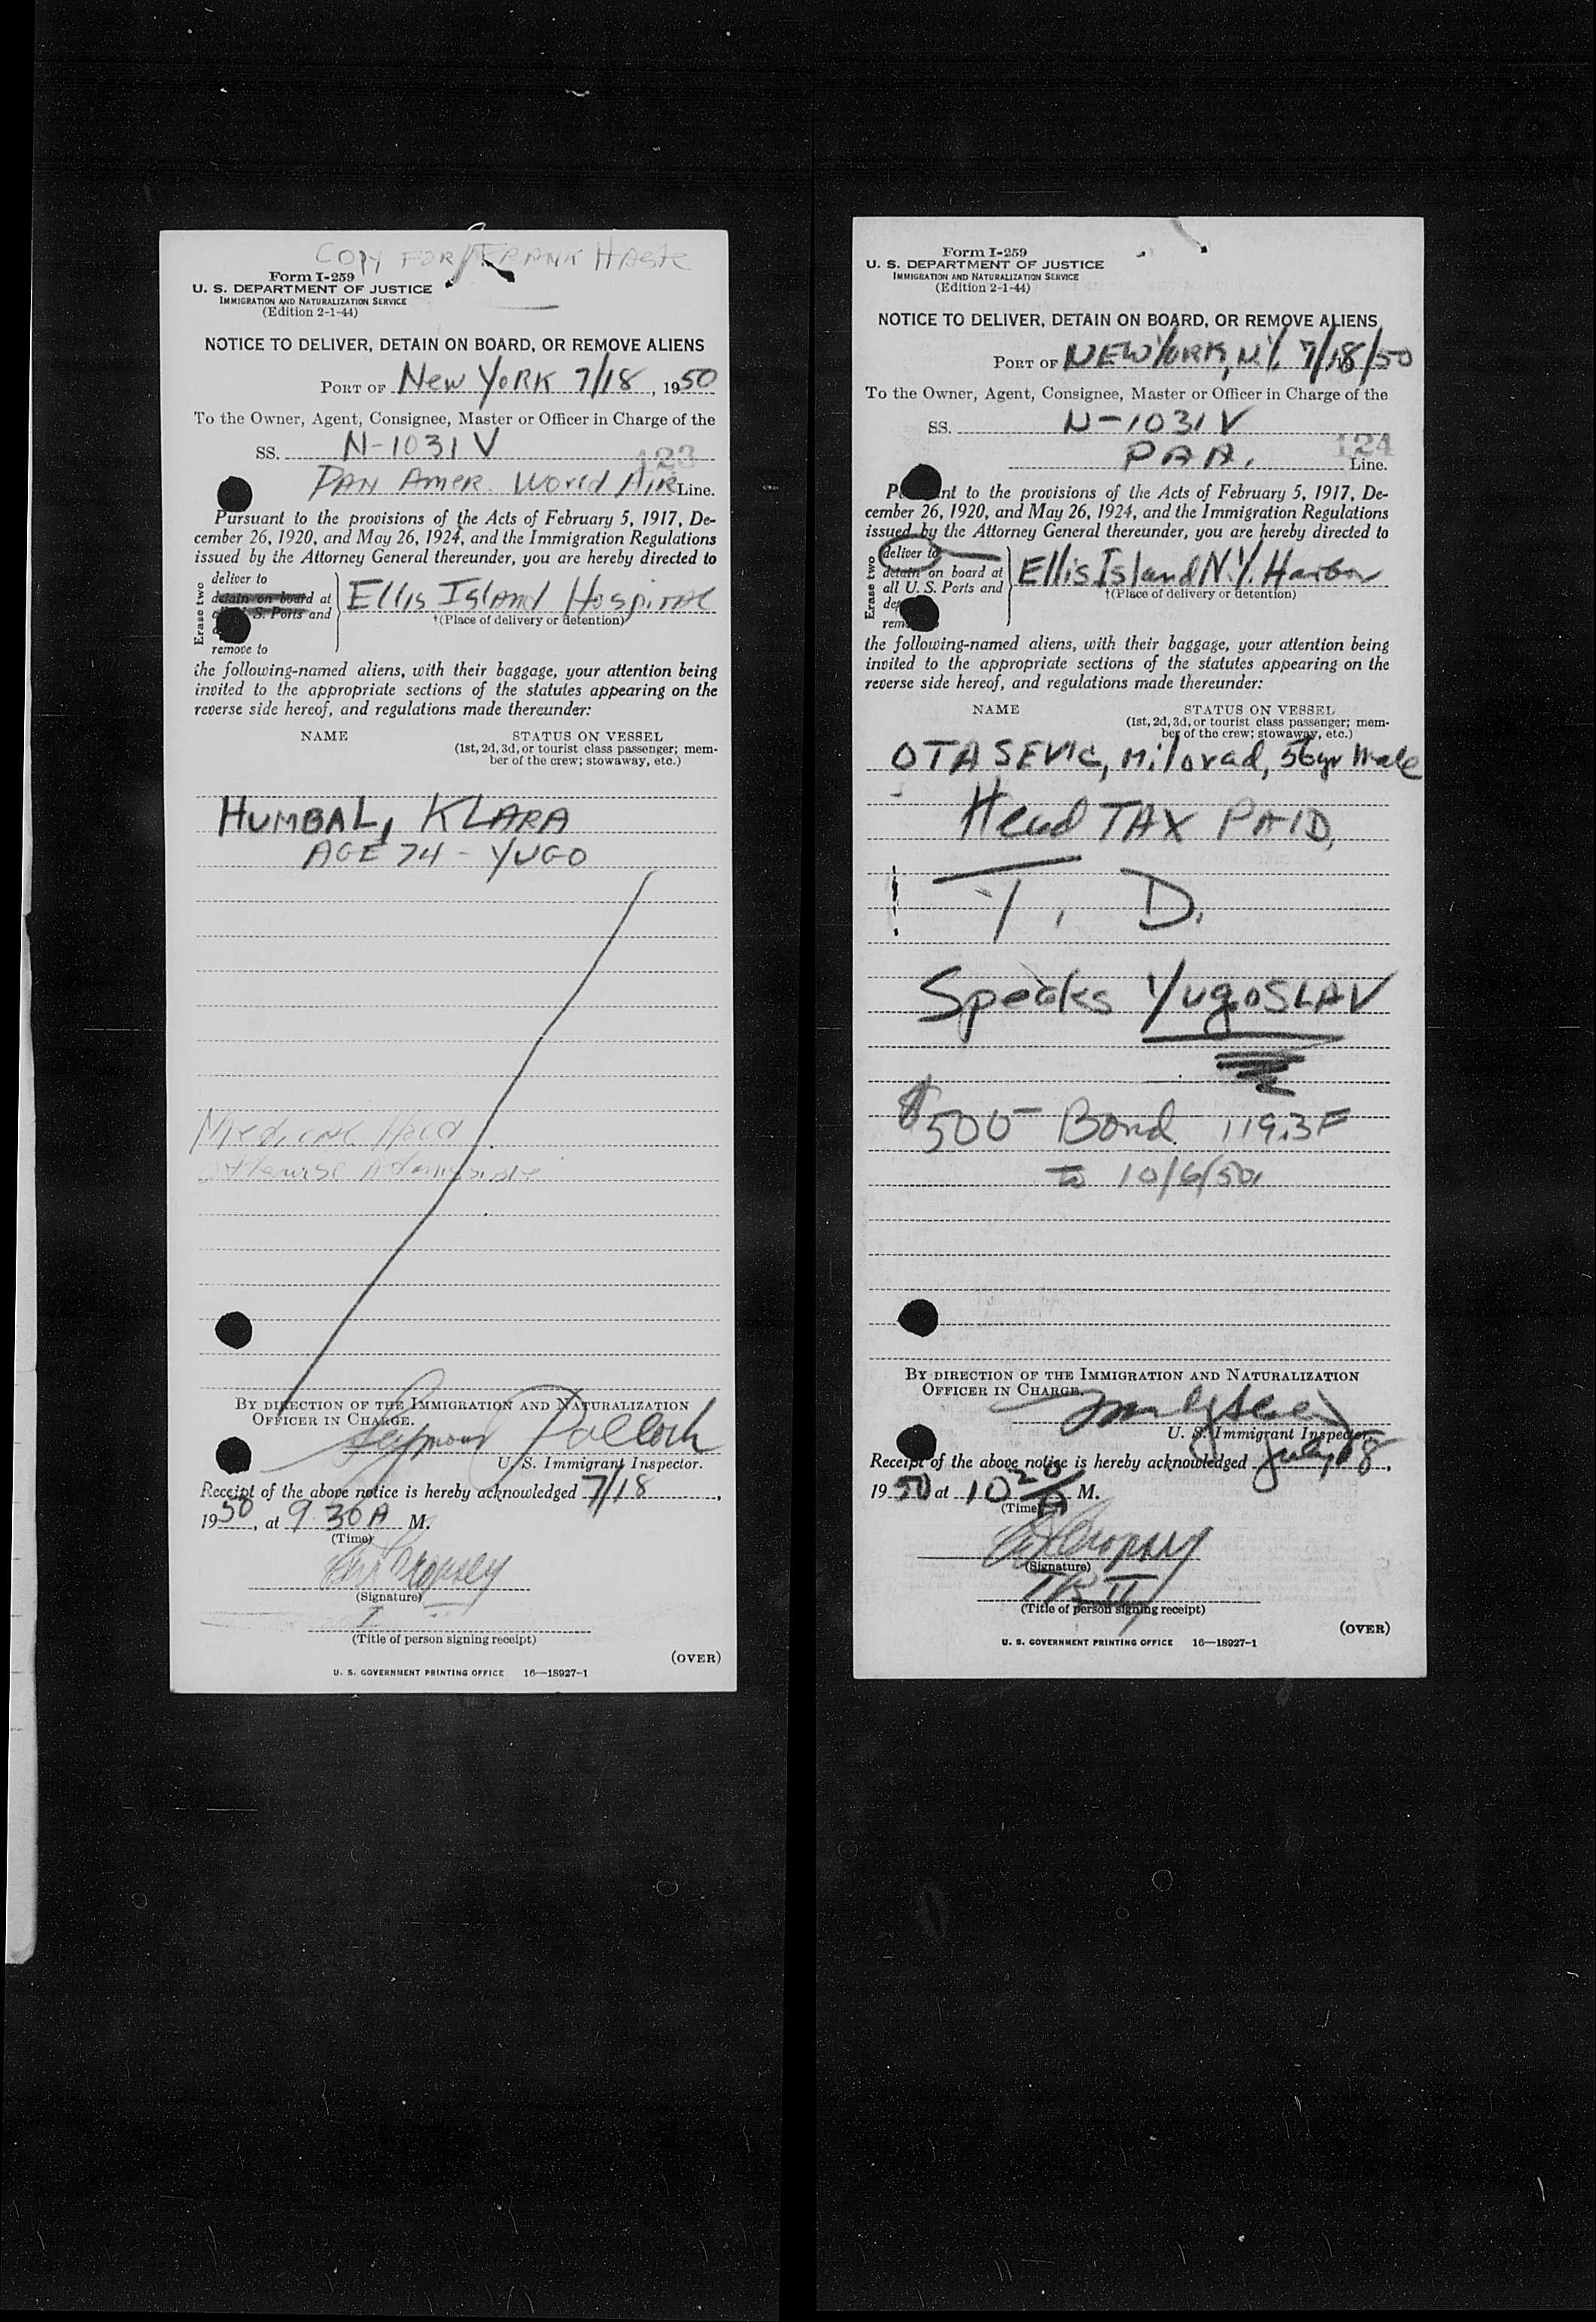 COPY FOR FRANK HASTE
Form I-259
U. S. DEPARTMENT OF JUSTICE
IMMIGRATION AND NATURALIZATION SERVICE
(Edition 2-1-44)
NOTICE TO DELIVER, DETAIN ON BOARD, OR REMOVE ALIENS
PORT OF New YORK 7/18, 1950
To the Owner, Agent, Consignee, Master or Officer in Charge of the
SS. N-1031V
123
PAN Amer. World AIR Line.
Pursuant to the provisions of the Acts of February 5, 1917, De-
cember 26, 1920, and May 26, 1924, and the Immigration Regulations
issued by the Attorney General thereunder, you are hereby directed to
Erase two
deliver to
detain on board at
S. Ports and
remove to
Ellis Island Hospital
†(Place of delivery or detention)
the following-named aliens, with their baggage, your attention being
invited to the appropriate sections of the statutes appearing on the
reverse side hereof, and regulations made thereunder:
NAME STATUS ON VESSEL
(1st, 2d, 3d, or tourist class passenger; mem-
ber of the crew; stowaway, etc.)
HUMBAL, KLARA
AGE 74 - YUGO
Medical Hold
otherwise Admissible
BY DIRECTION OF THE IMMIGRATION AND NATURALIZATION
OFFICER IN CHARGE.
Seymour Pollock
U. S. Immigrant Inspector.
Receipt of the above notice is hereby acknowledged 7/18,
1950, at 9 30 A M.
(Time)
Cropsey
(Signature)
(Title of person signing receipt)
(OVER)
U. S. GOVERNMENT PRINTING OFFICE 16—18927-1
Form I-259
U. S. DEPARTMENT OF JUSTICE
IMMIGRATION AND NATURALIZATION SERVICE
(Edition 2-1-44)
NOTICE TO DELIVER, DETAIN ON BOARD, OR REMOVE ALIENS
PORT OF NEW YORK, N.Y. 7/18/50
To the Owner, Agent, Consignee, Master or Officer in Charge of the
SS. N-1031V
124
PAA. Line.
P nt to the provisions of the Acts of February 5, 1917, De-
cember 26, 1920, and May 26, 1924, and the Immigration Regulations
issued by the Attorney General thereunder, you are hereby directed to
Erase two
deliver to
detain on board at
all U. S. Ports and
de
rem
Ellis Island N.Y. Harbor
†(Place of delivery or detention)
the following-named aliens, with their baggage, your attention being
invited to the appropriate sections of the statutes appearing on the
reverse side hereof, and regulations made thereunder:
NAME STATUS ON VESSEL
(1st, 2d, 3d, or tourist class passenger; mem-
ber of the crew; stowaway, etc.)
OTASEVIC, Milorad, 56yr Male
Head TAX PAID,
T. D.
Speaks YugoSLAV
$500- Bond 119.3F
to 10/6/50
BY DIRECTION OF THE IMMIGRATION AND NATURALIZATION
OFFICER IN CHARGE.
U. S. Immigrant Inspector.
Receipt of the above notice is hereby acknowledged July 18,
1950 at 10 20 A M.
(Time)
Cropsey
(Signature)
(Title of person signing receipt)
(OVER)
U. S. GOVERNMENT PRINTING OFFICE 16—18927-1